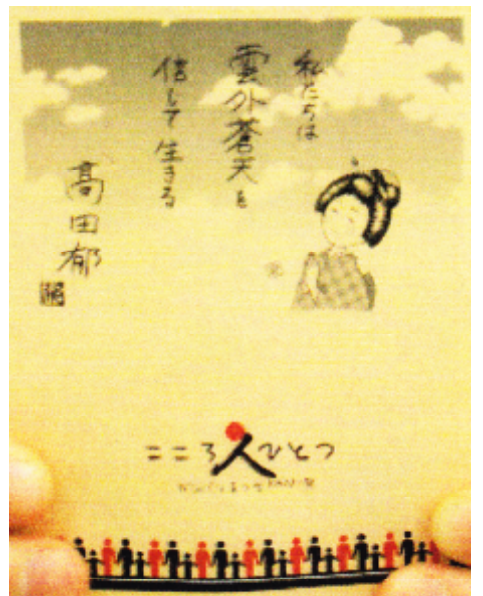 私たちは
雲外蒼天を
信じて生きる
髙田郁
こころ人ひとつ